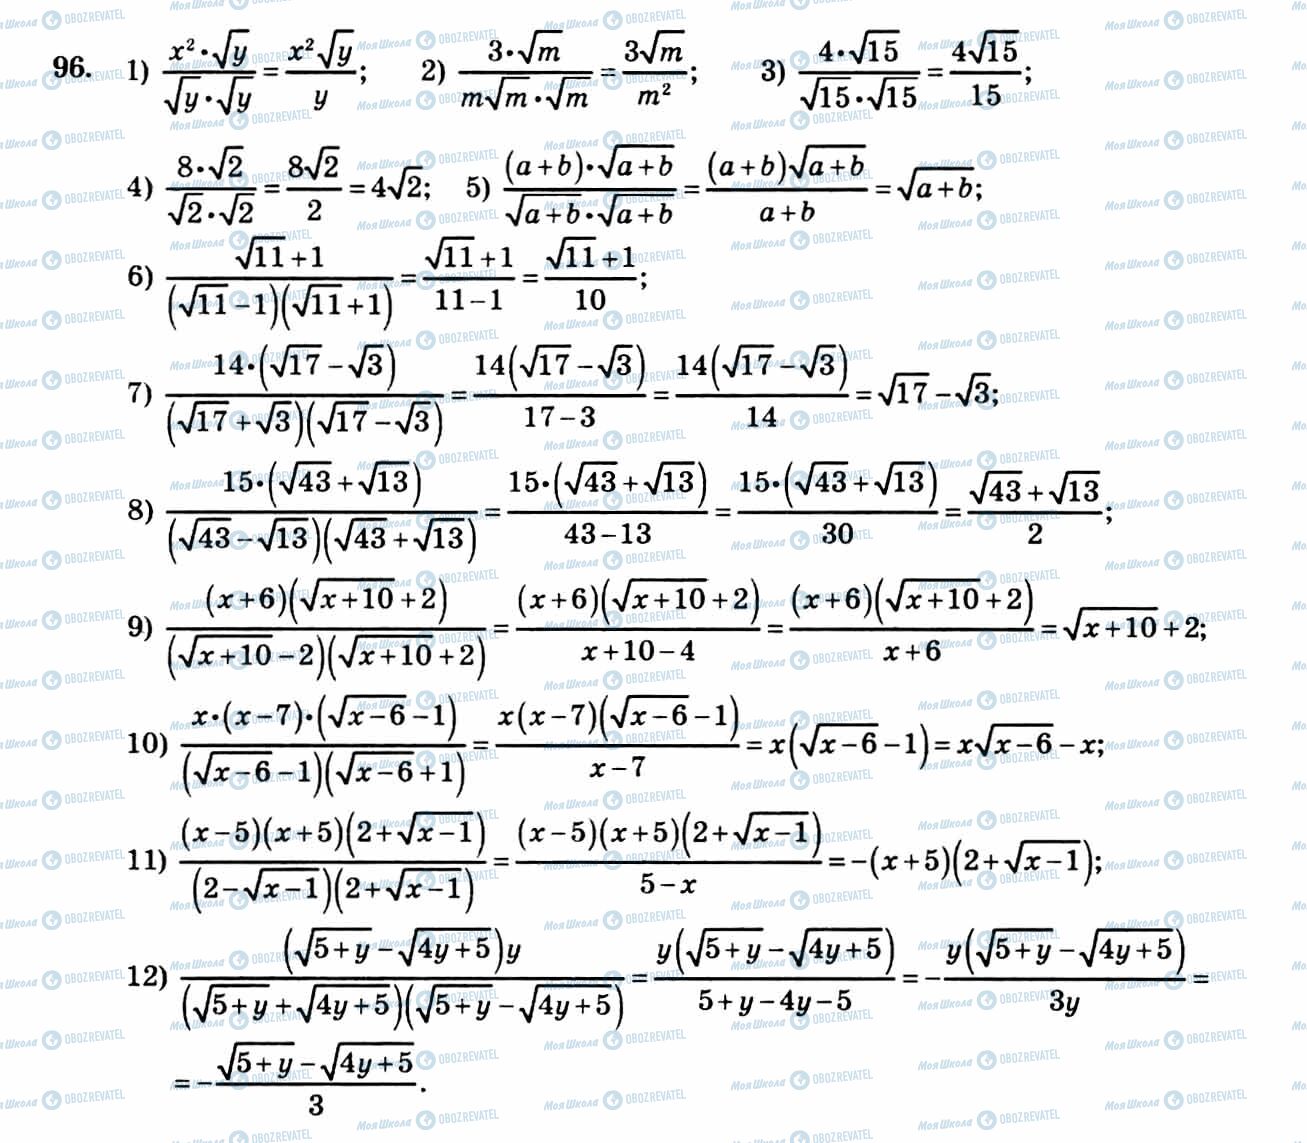 96. 1) \frac{x^2 \cdot \sqrt{y}}{\sqrt{y} \cdot \sqrt{y}} = \frac{x^2 \cdot \sqrt{y}}{y}; 2) \frac{3 \cdot \sqrt{m}}{m\sqrt{m} \cdot \sqrt{m}} = \frac{3\sqrt{m}}{m^2}; 3) \frac{4 \cdot \sqrt{15}}{\sqrt{15} \cdot \sqrt{15}} = \frac{4\sqrt{15}}{15};
4) \frac{8 \cdot \sqrt{2}}{\sqrt{2} \cdot \sqrt{2}} = \frac{8\sqrt{2}}{2} = 4\sqrt{2}; 5) \frac{(a+b) \cdot \sqrt{a+b}}{\sqrt{a+b} \cdot \sqrt{a+b}} = \frac{(a+b)\sqrt{a+b}}{a+b} = \sqrt{a+b};
6) \frac{\sqrt{11}+1}{(\sqrt{11}-1)(\sqrt{11}+1)} = \frac{\sqrt{11}+1}{11-1} = \frac{\sqrt{11}+1}{10};
7) \frac{14 \cdot (\sqrt{17}-\sqrt{3})}{(\sqrt{17}+\sqrt{3})(\sqrt{17}-\sqrt{3})} = \frac{14(\sqrt{17}-\sqrt{3})}{17-3} = \frac{14(\sqrt{17}-\sqrt{3})}{14} = \sqrt{17}-\sqrt{3};
8) \frac{15 \cdot (\sqrt{43}+\sqrt{13})}{(\sqrt{43}-\sqrt{13})(\sqrt{43}+\sqrt{13})} = \frac{15 \cdot (\sqrt{43}+\sqrt{13})}{43-13} = \frac{15 \cdot (\sqrt{43}+\sqrt{13})}{30} = \frac{\sqrt{43}+\sqrt{13}}{2};
9) \frac{(x+6)(\sqrt{x+10}+2)}{(\sqrt{x+10}-2)(\sqrt{x+10}+2)} = \frac{(x+6)(\sqrt{x+10}+2)}{x+10-4} = \frac{(x+6)(\sqrt{x+10}+2)}{x+6} = \sqrt{x+10}+2;
10) \frac{x \cdot (x-7) \cdot (\sqrt{x-6}-1)}{(\sqrt{x-6}-1)(\sqrt{x-6}+1)} = \frac{x(x-7)(\sqrt{x-6}-1)}{x-7} = x(\sqrt{x-6}-1) = x\sqrt{x-6}-x;
11) \frac{(x-5)(x+5)(2+\sqrt{x-1})}{(2-\sqrt{x-1})(2+\sqrt{x-1})} = \frac{(x-5)(x+5)(2+\sqrt{x-1})}{5-x} = -(x+5)(2+\sqrt{x-1});
12) \frac{(\sqrt{5+y}-\sqrt{4y+5})y}{(\sqrt{5+y}+\sqrt{4y+5})(\sqrt{5+y}-\sqrt{4y+5})} = \frac{y(\sqrt{5+y}-\sqrt{4y+5})}{5+y-4y-5} = -\frac{y(\sqrt{5+y}-\sqrt{4y+5})}{3y} =
= -\frac{\sqrt{5+y}-\sqrt{4y+5}}{3}.
Моя Школа OBOZREVATEL